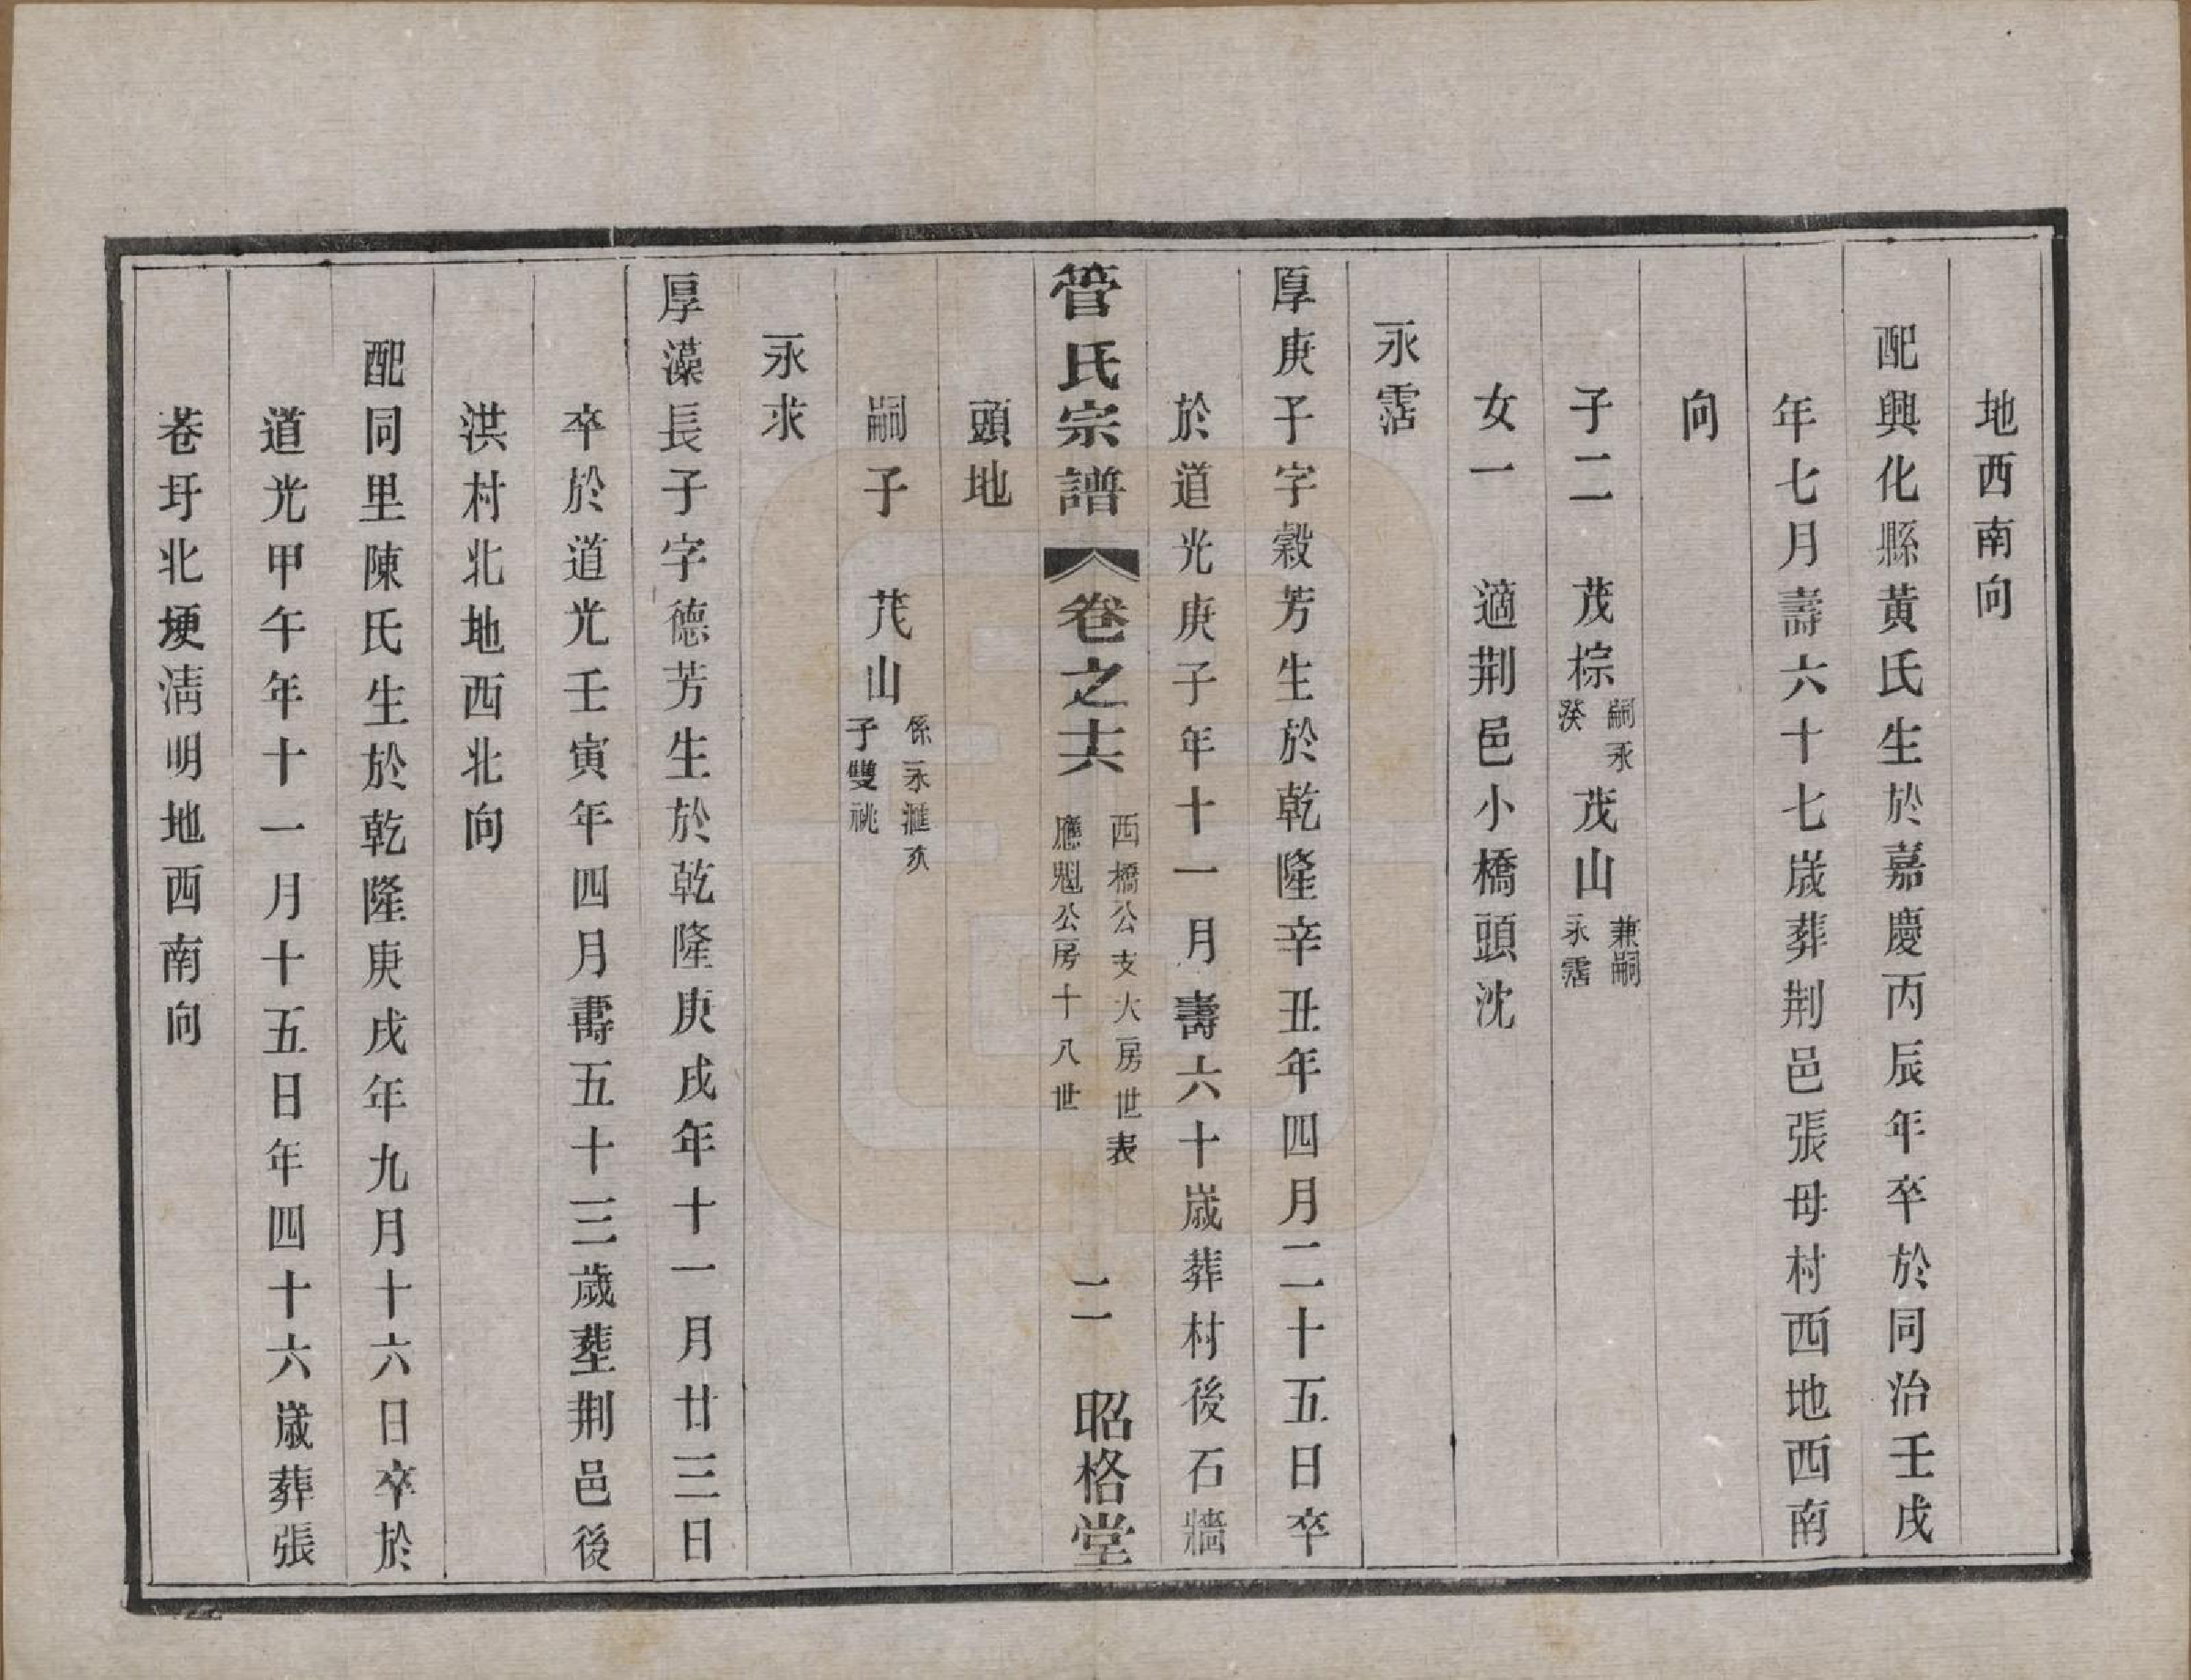 地西南向
配興化縣黄氏生於嘉慶丙辰年卒於同治壬戌
年七月壽六十七歳葬荆邑張母村西地西南
向
子二　茂棕嗣永癸　茂山兼嗣永霑
女一　適荆邑小橋頭沈
永霑
厚庚子字穀芳生於乾隆辛丑年四月二十五日卒
於道光庚子年十一月壽六十歳葬村後石牆
管氏宗譜　卷之十六　西橋公支大房世表　應魁公房十八世　二　昭格堂
頭地
嗣子　茂山係永滙次子雙祧
永求
厚藻長子字德芳生於乾隆庚戌年十一月廿三日
卒於道光壬寅年四月壽五十三歲塟荆邑後
洪村北地西北向
配同里陳氏生於乾隆庚戌年九月十六日卒於
道光甲午年十一月十五日年四十六歳葬張
巷圩北埂淸明地西南向